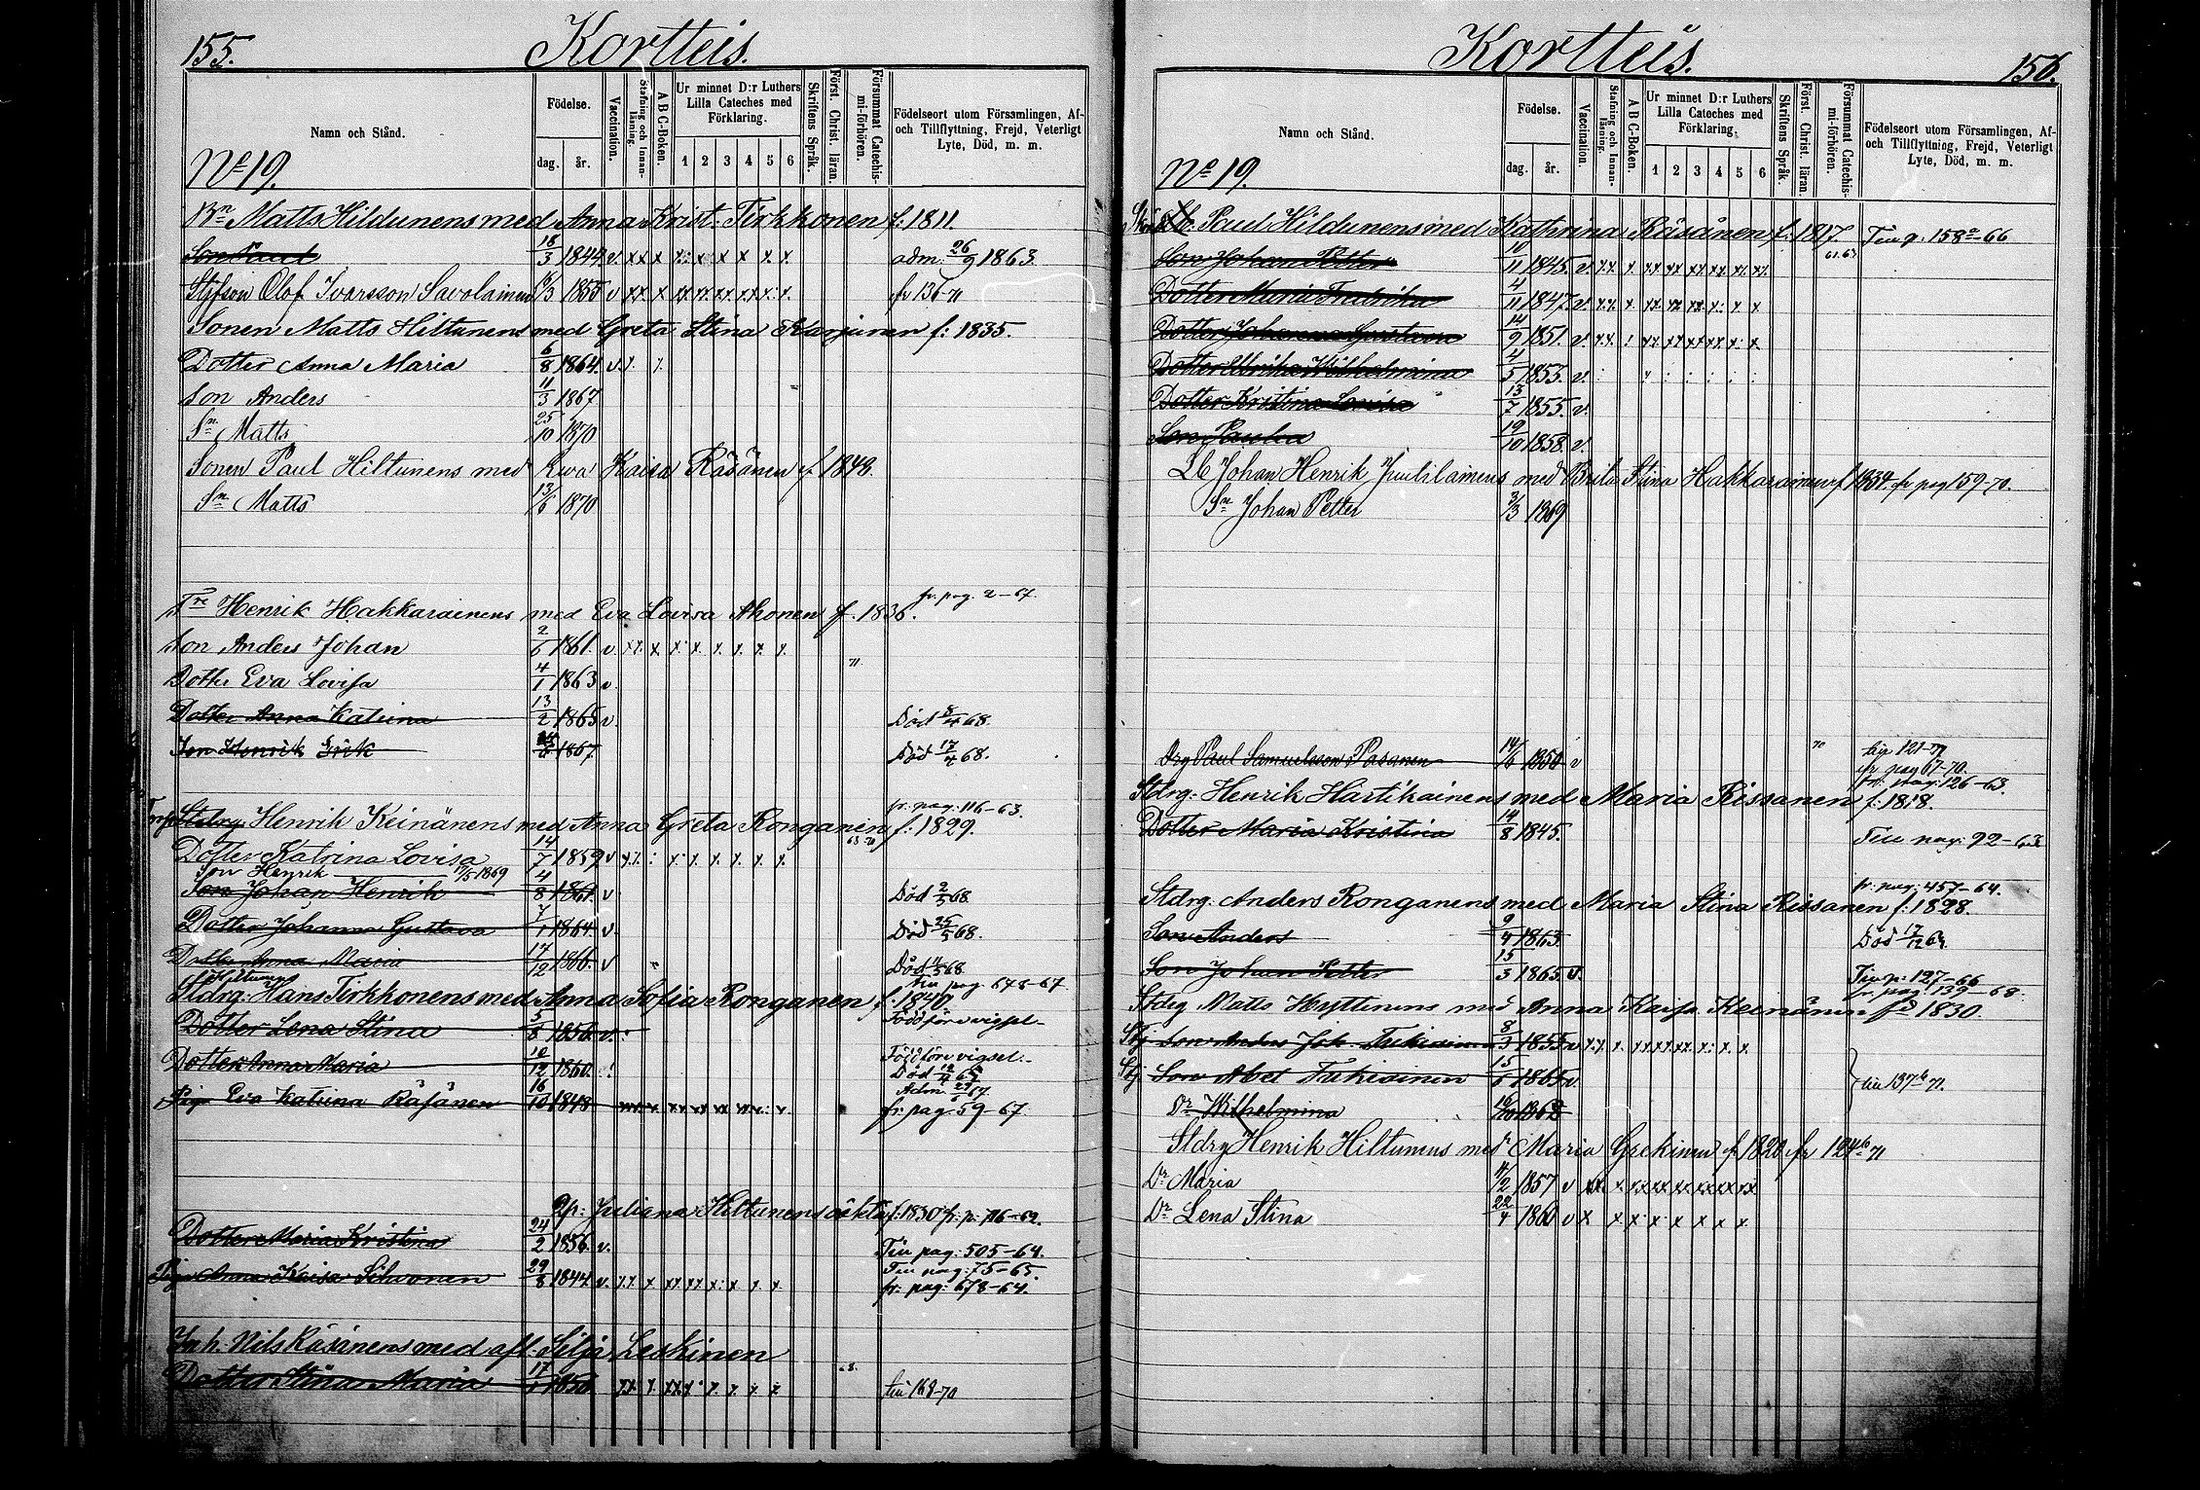 155.
Kortteis.
Namn och Stånd.
Födelse.
dag. år.
Vaccination.
Stafning och Innanläsning.
A B C-Boken.
Ur minnet D:r Luthers Lilla Cateches med Förklaring.
1 2 3 4 5 6
Skriftens Språk.
Först. Christ. läran.
Försummat Catechismi-förhören.
Födelseort utom Församlingen, Af- och Tillflyttning, Frejd, Veterligt Lyte, Död, m. m.
No 19.
Bn Matts Hildunens med Anna Krist: Tirkkonen f: 1811.
Son Paul 18/3 1844. v. adm. 26/9 1863.
Styfson Olof Ivarsson Savolainen 1855 v fr 136-71
Sonen Matts Hiltunens med Greta Stina Karjunen f: 1835.
Dotter Anna Maria 6/8 1864. v.
Son Anders 11/3 1867
Sn Matts 25/10 1870
Sonen Paul Hiltunens med Ewa Kaisa Räsänen f 1848.
Sn Matts 13/6 1870
fr. pag. 2-67.
Henrik Hakkarainens med Eva Lovisa Ahonen f. 1836.
Son Anders Johan 2/6 1861. v.
71
Dotter Eva Lovisa 4/1 1863 v.
Dotter Anna Katrina 13/2 1865 v. Död 8/4 68.
Son Henrik Erik 1867. Död 17/4 68.
fr. pag: 116-63.
Stdrg Henrik Keinänens med Anna Greta Ronganen f: 1829.
Dotter Katrina Lovisa 14/7 1859 v
Son Henrik 1869
Son Johan Henrik 4/8 1861 v Död 2/5 68
Dotter Johanna Gustava 7/1 1864. v. Död 25/5 68.
Dotter Anna Maria 17/12 1866. v Död 68
pag 678-67.
Stdrg: Hans Tirkkonens med Anna Sofia Ronganen f. 1840.
Dotter Lena Stina 1856 v. Född före vigsel-
Dotter Anna Maria 1860. Född före vigsel:
Död
Adm
Piga Eva Katrina Räsänen 16/10 1848 fr. pag 59-67.
Juliana Hiltunens oäkta f. 1830 fr. p. 116-62.
Dotter Maria Kristina 24/2 1856. v. Till pag: 505-64.
Till pag: 75-65.
Piga Anna Kaisa Sihvonen 29/8 1844 v. fr. pag: 678-64.
Inh. Nils Räsänens med afl. Silja Leskinen
68.
Dotter Stina Maria 17/1 1850. till 168-70
Kortteis.
156.
Namn och Stånd.
Födelse.
dag. år.
Vaccination.
Stafning och Innanläsning.
A B C-Boken.
Ur minnet D:r Luthers Lilla Cateches med Förklaring.
1 2 3 4 5 6
Skriftens Språk.
Först. Christ. läran.
Försummat Catechismi-förhören.
Födelseort utom Församlingen, Af- och Tillflyttning, Frejd, Veterligt Lyte, Död, m. m.
No 19.
Paul Hildunens med Kathrina Räsänen f. 1817. Till p. 158-66
Son Johan Petter 10/11 1845. v.
Dotter Maria Fredrika 4/11 1847. v.
Dotter Johanna Gustava 14/9 1851. v.
Dotter Ulrika Wilhelmina 4/5 1853. v.
Dotter Kristina Lovisa 13/7 1855. v.
Son Paulus 19/10 1858. v.
Lb Johan Henrik Juutilainens med Brita Stina Hakkarainen f 1834. fr pag 159-70.
Sn Johan Petter 1869
70
Drg Paul Samuelsson Pasanen 1850 v 121-71
fr pag 67-70.
fr. pag: 126-63.
Stdrg: Henrik Hartikainens med Maria Rissanen f: 1818.
Dotter Maria Kristina 14/8 1845. Till pag: 92-
fr: pag: 457-64.
Stdrg: Anders Ronganens med Maria Stina Rissanen f: 1828.
Son Anders 9/4 1863. Död
Son Johan Petter 15/3 1865 v. Till p: 127-66
fr. pag: 139-68.
Stdrg Matts Hyttinens med Anna Kaisa Keinänen fd 1830.
Stj Son Anders Joh. 8/3 1855 v
Stj Son Abel 1865 v.
till 137 b 71.
Dr Wilhelmina 1868
Stdrg Henrik Hiltunens med Maria f 1820 fr 124 b 71
Dr Maria 4/2 1857 v
Dr Lena Stina 22/4 1860 v